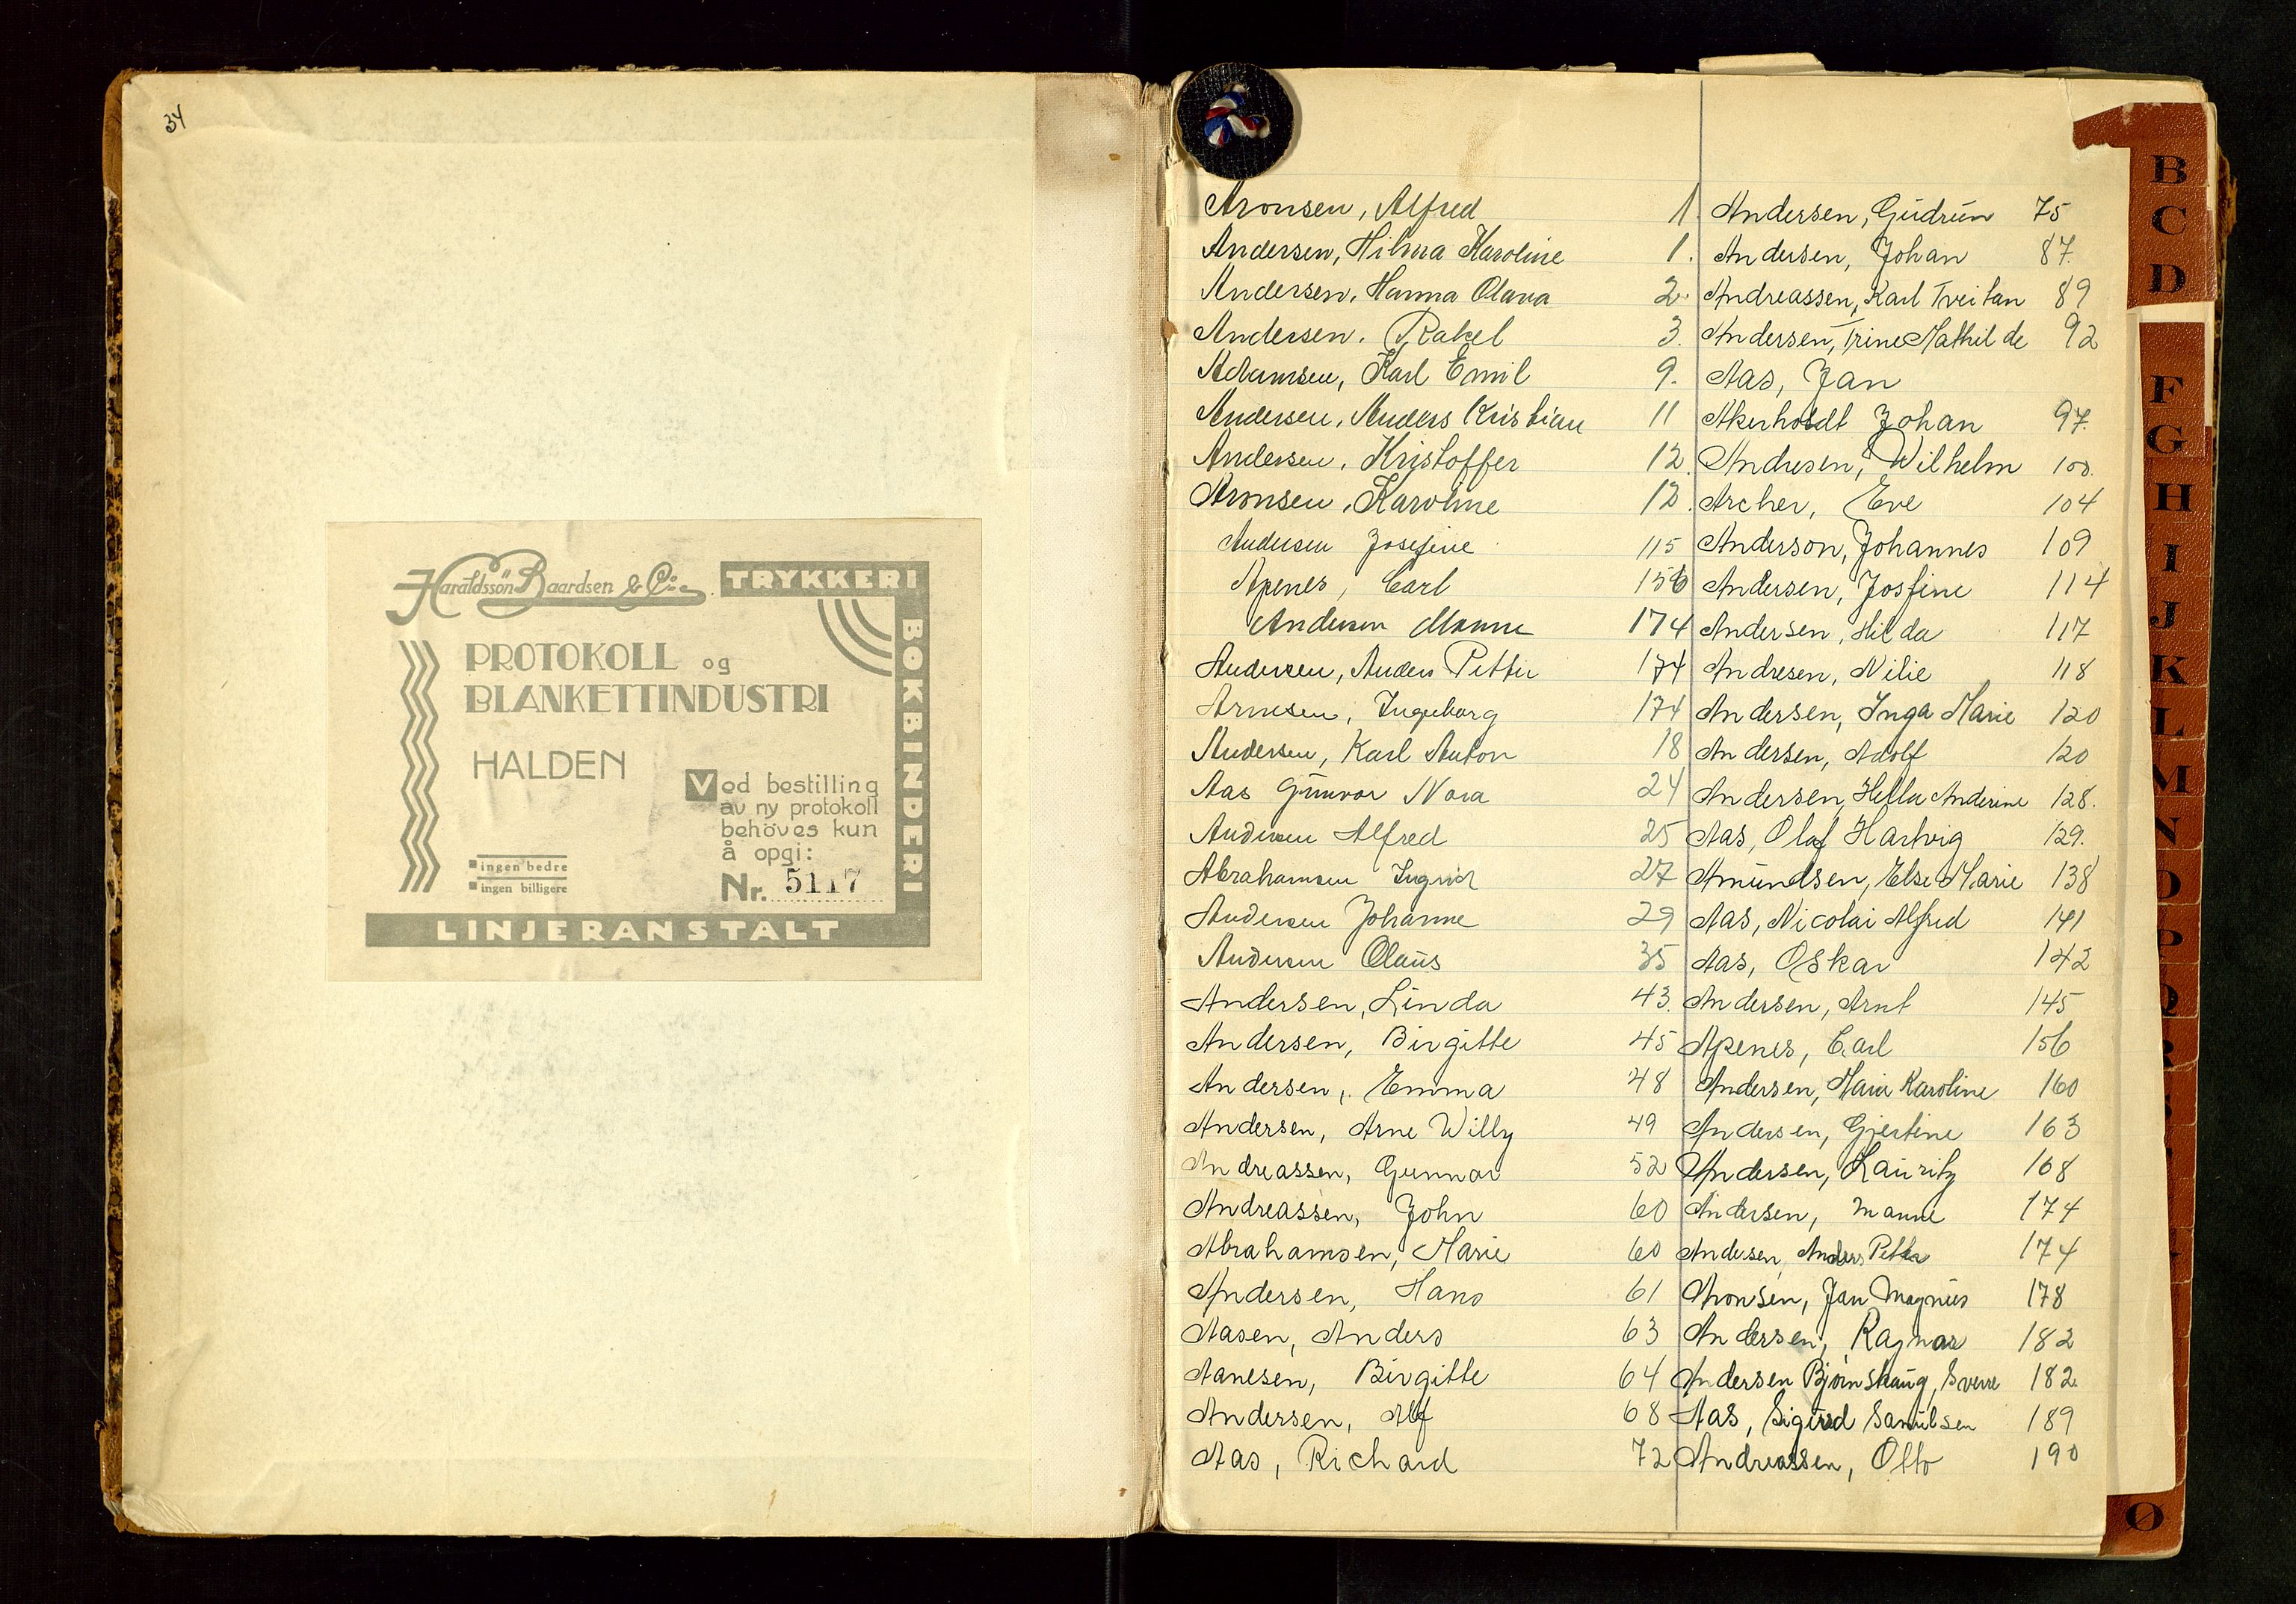 34
Haraldssön Baardsen & Co. TRYKKERI
BOKBINDERI
PROTOKOLL og
BLANKETTINDUSTRI
HALDEN
Ved bestilling
av ny protokoll
behöves kun
å opgi:
Nr. 5117
ingen bedre
ingen billigere
LINJERANSTALT
Aronsen, Alfred 1.
Andersen, Hilma Karoline 1.
Andersen, Hanna Olava 2.
Andersen, Rakel 3.
Adamsen, Karl Emil 9.
Andersen, Anders Kristian 11
Andersen, Kristoffer 12.
Aronsen, Karoline 12.
Andersen Josefine 115
Apenes, Carl 156
Andersen Manne 174
Andersen, Anders Petter 174
Arnesen, Ingeborg 174
Andersen, Karl Anton 18
Aas Gunvor Nora 24
Andersen Alfred 25
Abrahamsen Ingrid 27
Andersen Johanne 29
Andersen Olaus 35
Andersen, Linda 43.
Andersen, Birgitte 45
Andersen, Emma 48
Andersen, Arne Willy 49
Andreassen, Gunnar 52
Andreassen, John 60
Abrahamsen, Marie 60
Andersen, Hans 61
Aasen, Anders 63
Aanesen, Birgitte 64
Andersen, Alf 68
Aas, Richard 72
Andersen, Gudrun 75
Andersen, Johan 87.
Andreassen, Karl Tveitan 89
Andersen, Trine Mathilde 92
Aas, Jan
Akerholdt Johan 97.
Andresen, Wilhelm 100.
Archer, Eve 104
Anderson, Johannes 109
Andersen, Josfine 114
Andersen, Hilda 117
Andresen, Nilie 118
Andersen, Inga Marie 120
Andersen, Adolf 120
Andersen, Hella Anderine 128.
Aas, Olaf Hartvig 129.
Amundsen, Else Marie 138
Aas, Nicolai Alfred 141
Aas, Oskar 142
Andersen, Arnt 145
Apenes, Carl 156
Andersen, Maria Karoline 160
Andersen, Gjertine 163
Andersen, Lauritz 168
Andersen, Manne 174
Andersen, Anders Petter 174
Aronsen, Jan Magnus 178
Andersen, Ragnar 182
Andersen Bjørnskaug, Sverre 182.
Aas, Sigurd Samuelsen 189
Andreassen, Otto 190
B
C
D
F
G
H
I
J
K
L
M
N
O
P
Q
R
Ø